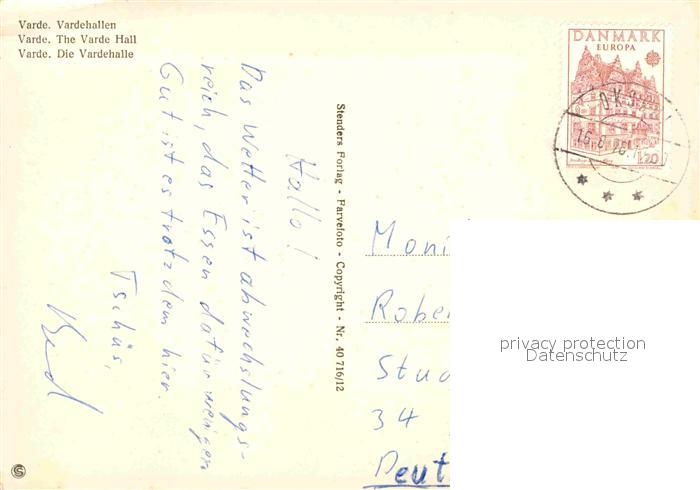 Varde. Vardehallen
Varde. The Varde Hall
Varde. Die Vardehalle
DANMARK
EUROPA
120
Stenders Forlag - Farvefoto - Copyright - Nr. 40 716/12
Hallo!
Das Wetter ist abwechslungs-
reich, das Essen dafür weniger
Gut ist es trotzdem hier.
Tschüs,
Moni
Rober
Stud
34
Deut
privacy protection
Datenschutz